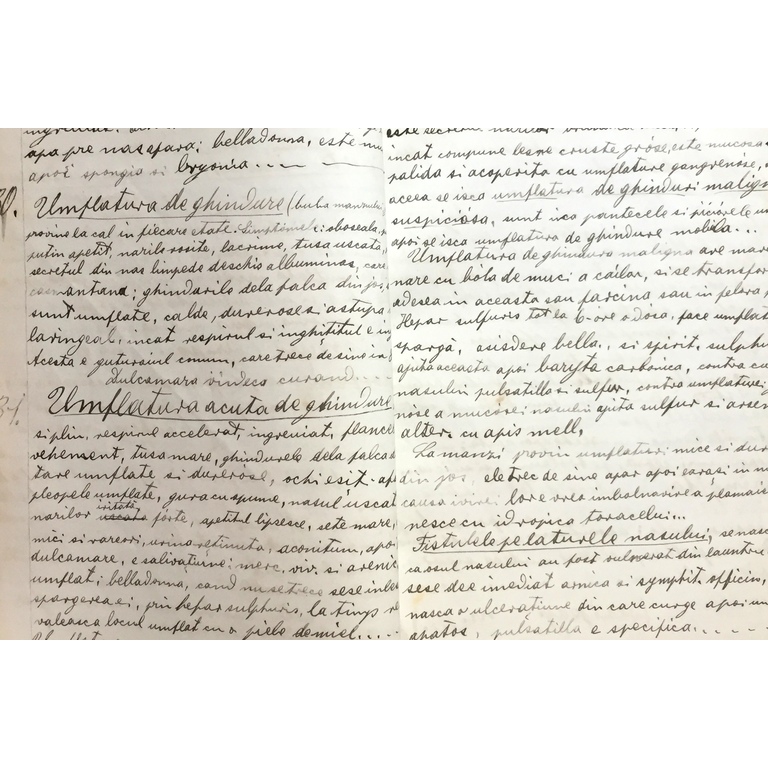 apa pre nas apara; belladonna, este
apoi spongia si bryonia . . — —
30. Umflatura de ghindure (buba manzului
provine la cal in fiecare etate. Simptomele: oboseala,
putin apetit, narile rosite, lacrime, tusa uscata,
secretul din nas limpede deschis albuminos, care
; ghindurile dela falca din jos,
sunt umflate, calde, dureroase si astupa
laringeal, incat respirul si inghititul e
Acesta e guturaiul comun, care trece de sine in
Dulcamara vindeca curand . . .
31. Umflatura acuta de ghindure
si plin, respirul accelerat, ingreuiat,
vehement, tusa mare, ghindurele dela falca
tare umflate si dureróse, ochi esiti,
pleopele umflate, gura cu spume, nasul uscat
narilor iritata uscata fórte, apetitul lipsesce, sete mare,
mici si vareori, urina retinuta, aconitum, apoi
dulcamare, e salivatiune; merc. viv. si arenic
umflat; belladonna, cand nu se trece
spargerea ei, prin hepar sulphuris, la timp
valeasca locul umflat cu o piele de miel. . . .
este secretul narilor
incat compune lesne cruste gróse, este mucosa
palida si acoperita cu umflature gangrenóse,
aceea se isca umflatura de ghinduri malign
suspiciósa, sunt inca pantecele si piciórele
apoi se isca umflatura de ghindure mobila . . .
Umflatura de ghindura maligna are
nare cu bóla de muci a cailor, si se transfor
adesea in aceasta sau farcina, sau in febra
Hepar sulfuris tot la 6 ore o Dosa, face umflat
sparga, aisdere bella., si spirit. sulph
ajuta aceasta apoi baryta carbonica, contra
nasului pulsatilla si sulfur, contra umflaturei
nóse a mucósei nasului ajuta sulfur si arsen
alter. cu apis mell.
La manzi provin umflaturi mici si dur
din jos, ele trec de sine apar apoi earasi in
causa ivirei lor e vreo imbolnavire a plamai
nesce cu idropica toracelui . . .
Fistulele pe laturele nasului, se nasc
ca osul nasului au fost vulnerat din launtru
sese dee imediat arnica si symphit. officin,
nasca o ulceratiune din care curge apoi un
apatos, pulsatilla e specifica. . . . .